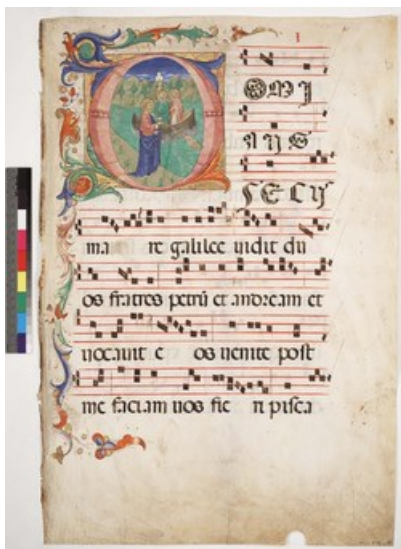 DOMI
NUS
SECU
ma re galilee uidit du
os fratres petrū et andream et
uocauit e os uenite post
me faciam uos fie ri pisca